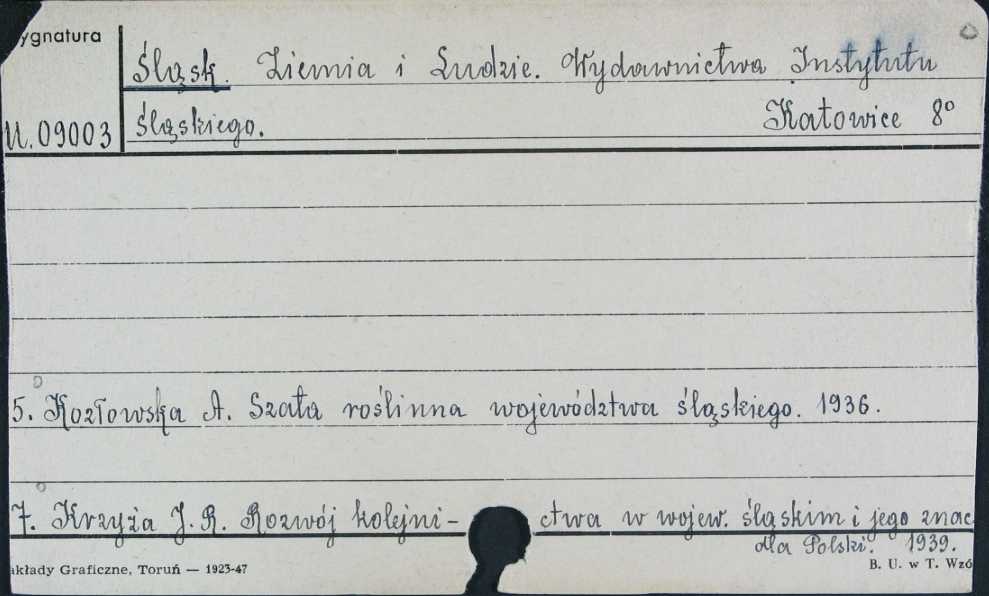 ygnatura
Śląsk. Ziemia i Ludzie. Wydawnictwa Instytutu
U.09003 śląskiego. Katowice 8°
5. Kozłowska A. Szata roślinna województwa śląskiego. 1936.
7. Krzyża J. R. Rozwój kolejni- ctwa w wojew. śląskim i jego znac
dla Polski. 1939.
akłady Graficzne, Toruń — 1923-47 B. U. w T. Wzó